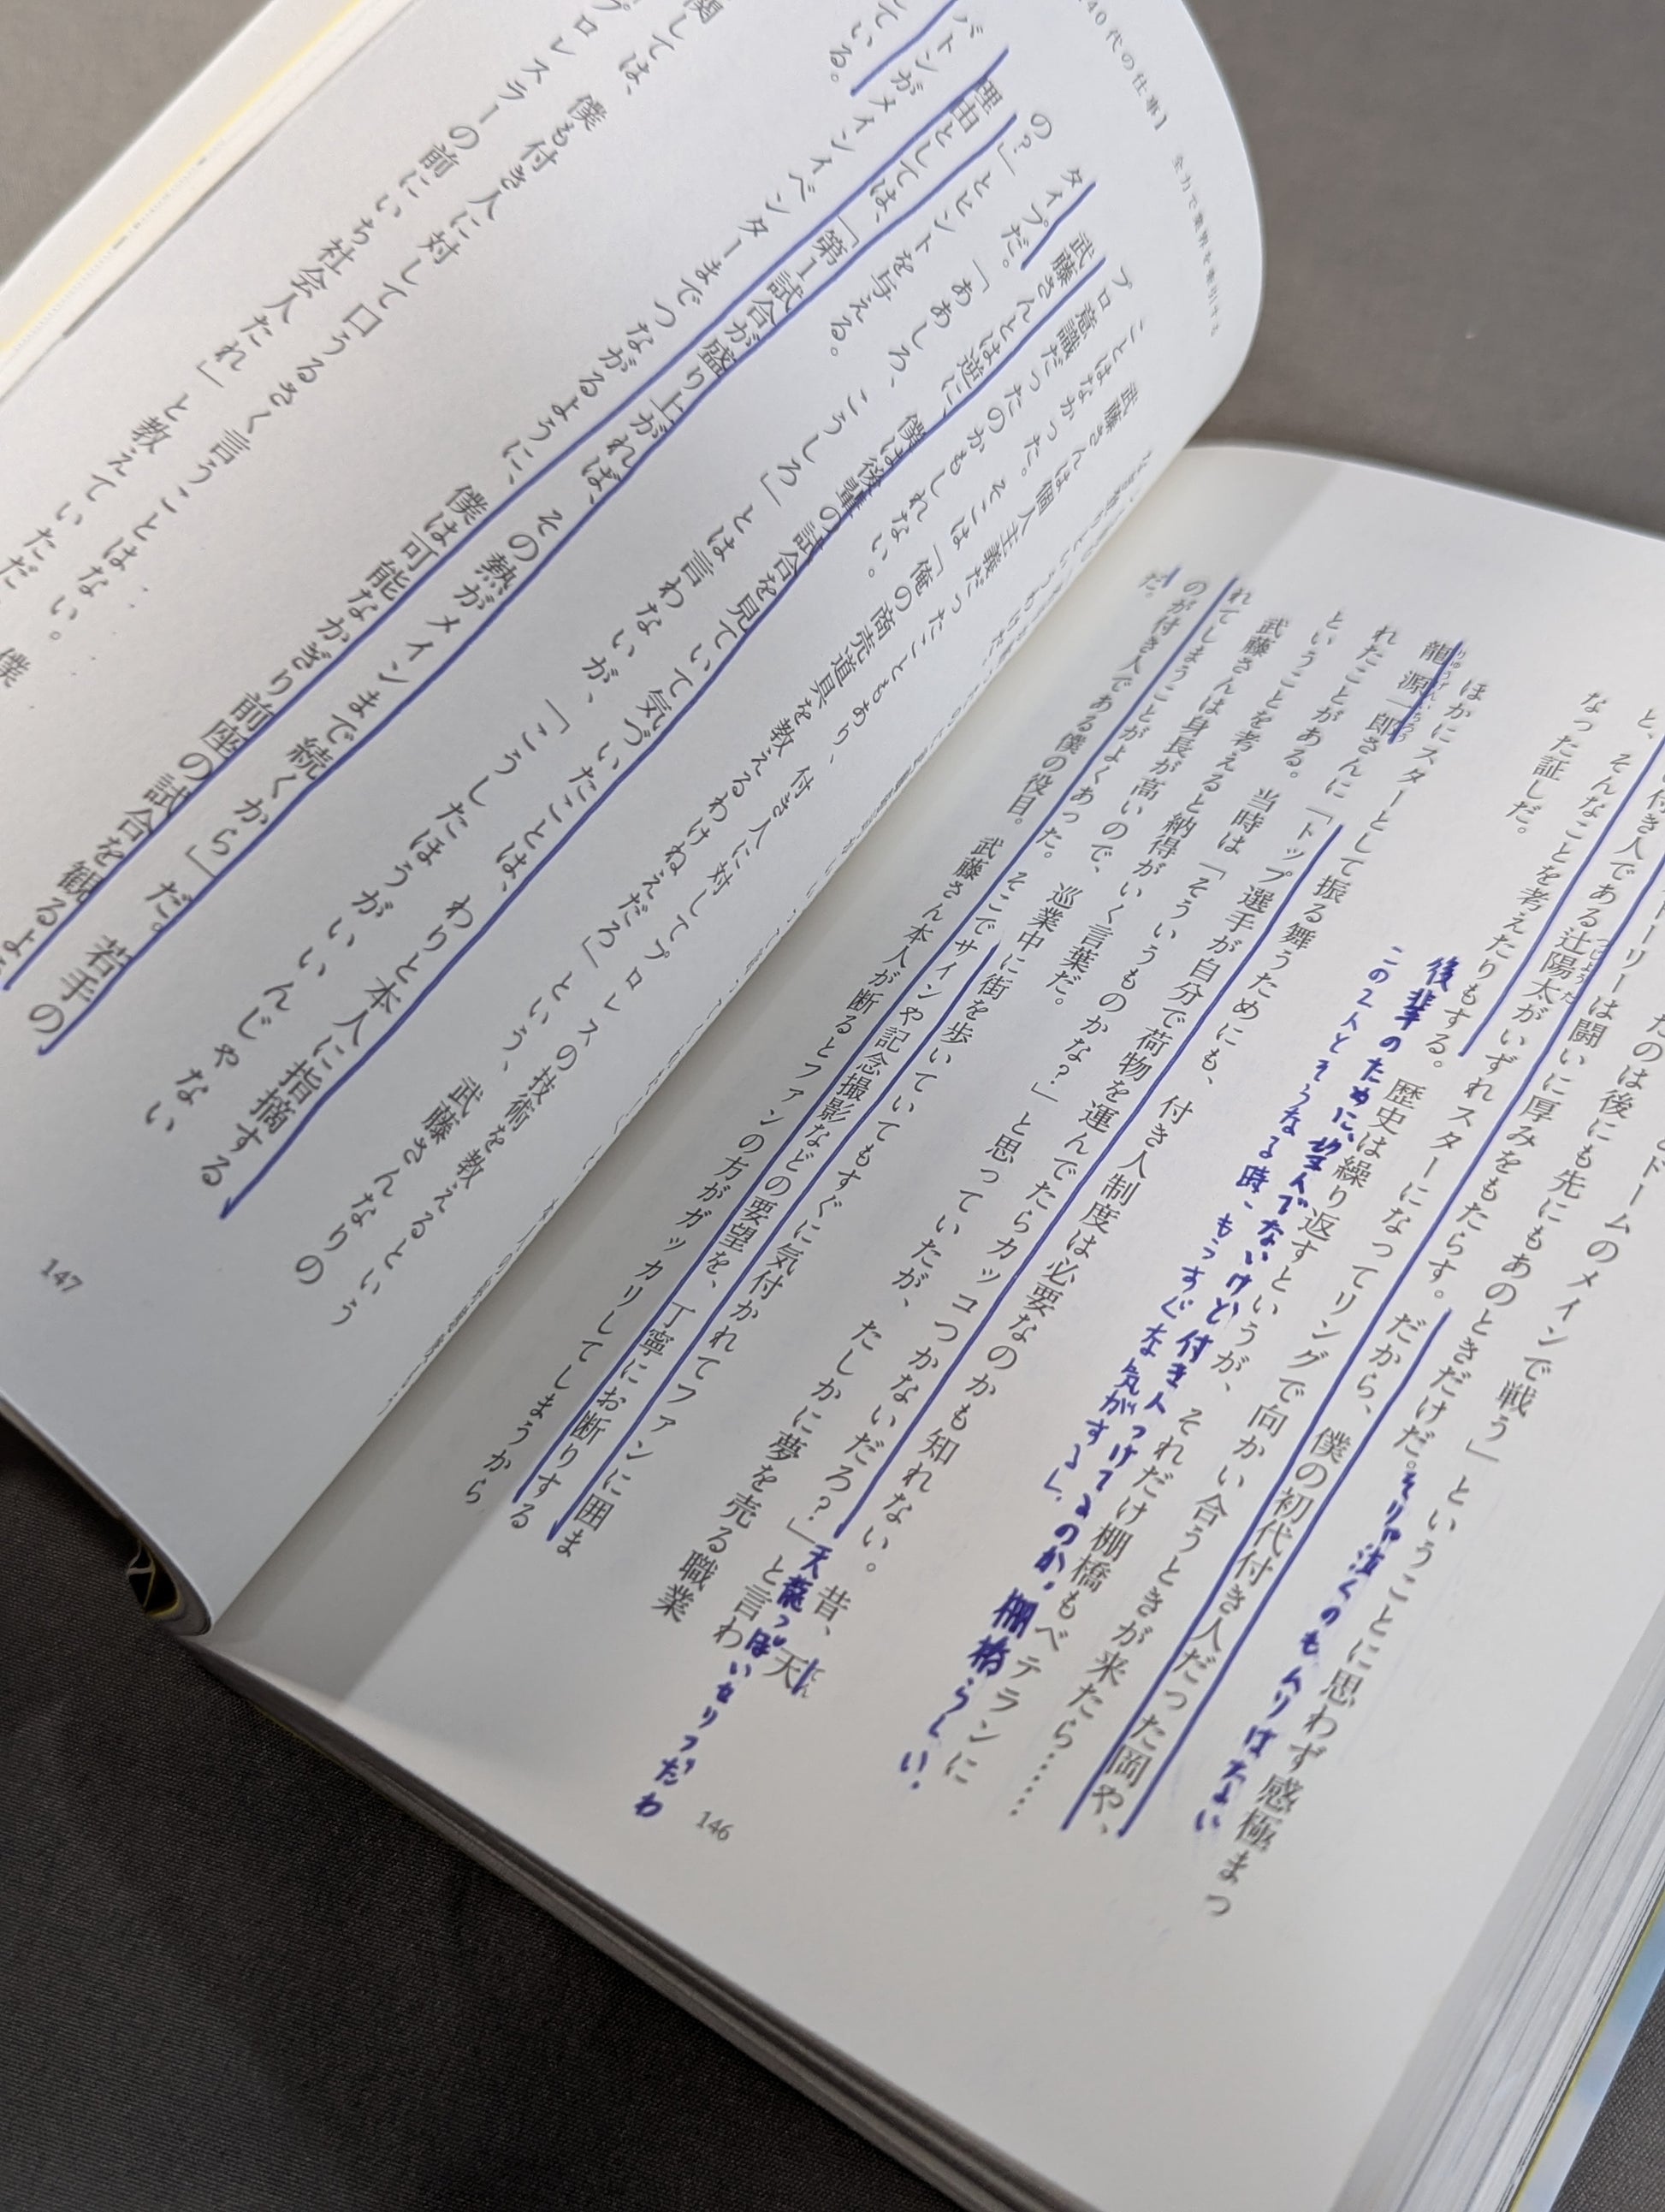 たのは後にも先にもあのときだけだ。
ドームのメインで戦う」ということに思わず感極まつ
と、
付き人である辻陽太がいずれスターになってリングで向かい合うときが来たら……
つじようた
そんなことを考えたりもする。歴史は繰り返すというが、それだけ棚橋もベテランに
なった証しだ。
ストーリーは闘いに厚みをもたらす。だから、僕の初代付き人だった岡や、
ほかにスターとして振る舞うためにも、付き人制度は必要なのかも知れない。昔、天
てん
龍源一郎さんに「トップ選手が自分で荷物を運んでたらカッコつかないだろ?」と言わ
りゅうげんいちろう
れたことがある。当時は「そういうものかな?」と思っていたが、たしかに夢を売る職業
ということを考えると納得がいく言葉だ。
武藤さんは身長が高いので、巡業中に街を歩いていてもすぐに気付かれてファンに囲ま
れてしまうことがよくあった。そこでサインや記念撮影などの要望を、丁寧にお断りする
のが付き人である僕の役目。武藤さん本人が断るとファンの方がガッカリしてしまうから
だ。
そりゃ泣くのもムリはない
後輩のために、望んでないけど付き人つけてるのか。棚橋らしい。
この2人とそうなる時、もうすぐな気がする!
天龍っぽいセリフだわ
146
40代の仕事】 全力で業界を牽引する
武藤さんは個人主義だったこともあり、付き人に対してプロレスの技術を教えるという
ことはなかった。そこは「俺の商売道具を教えるわけねえだろ」という、武藤さんなりの
プロ意識だったのかもしれない。
武藤さんとは逆に、僕は後輩の試合を見ていて気づいたことは、わりと本人に指摘する
タイプだ。「ああしろ、こうしろ」とは言わないが、「こうしたほうがいいんじゃない
の?」とヒントを与える。
理由としては、「第1試合が盛り上がれば、その熱がメインまで続くから」だ。若手の
バトンがメインイベンターまでつながるように、僕は可能なかぎり前座の試合を観るよ
ている。
関しては、僕も付き人に対して口うるさく言うことはない。
プロレスラーの前にいち社会人たれ」と教えていただ
僕
147